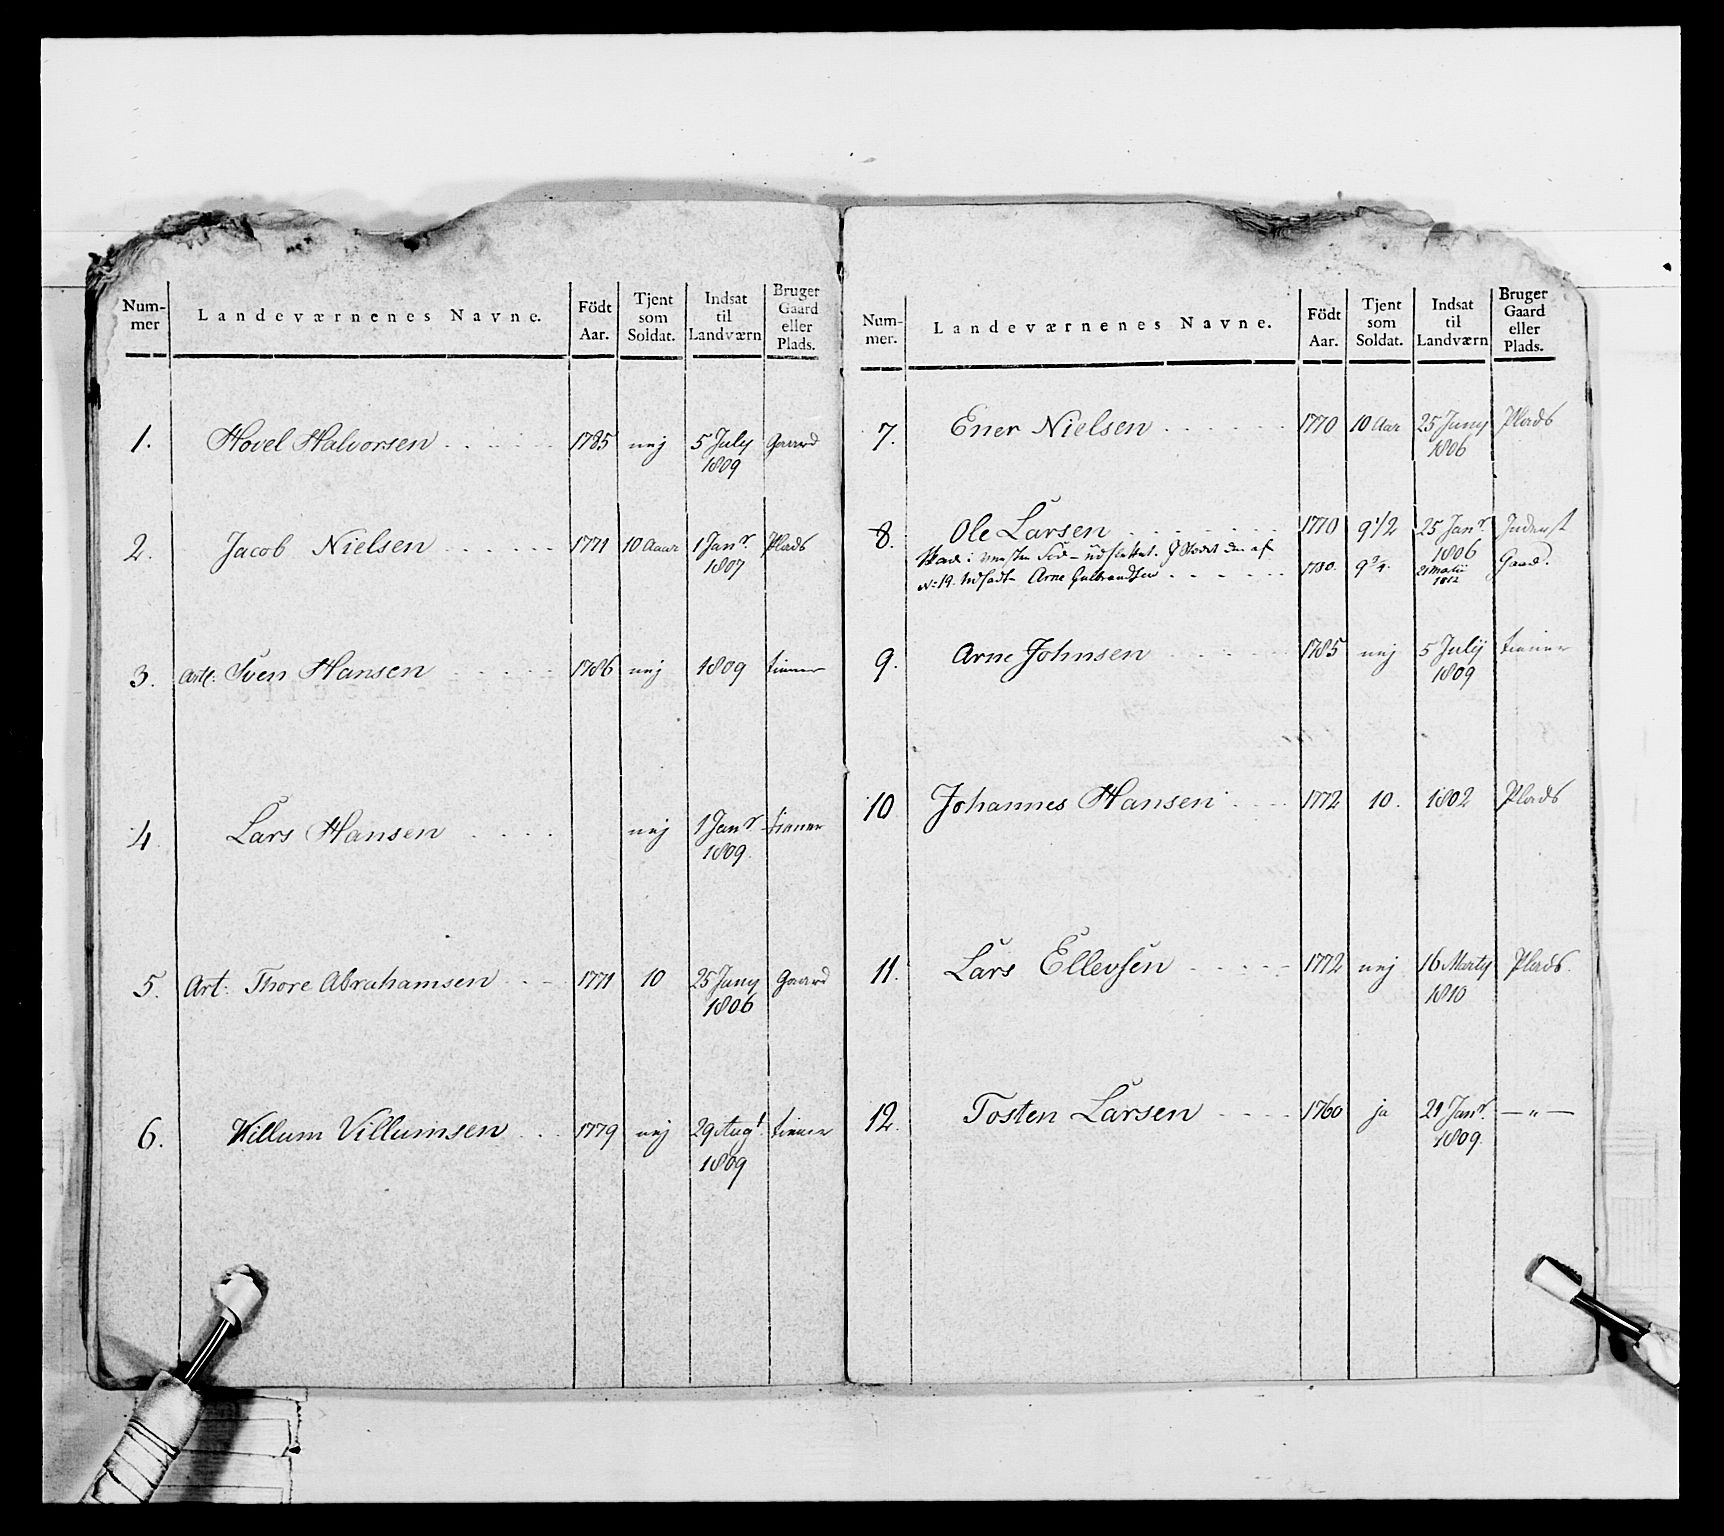 Num-
mer
Landeværnenes Navne.
Födt
Aar.
Tjent
som
Soldat.
Indsat
til
Landværn
Bruger
Gaard
eller
Plads.
1. Hovel Halvorsen 1785 nej 5 July Gaard
1809
2. Jacob Nielsen 1771 10 Aaar 1 Janr. Plads
1807
3. Artl: Sven Hansen 1786 nej 1809 tiener
4. Lars Hansen nej 1 Janr tiener
1809.
5. Art: Thore Abrahamsen 1771 10 25 Juny Gaard
1806
6. Willum Villumsen 1779 nej 29 Augt tiener
1809
Num-
mer.
Landeværnenes Navne.
Födt
Aar.
Tjent
som
Soldat.
Indsat
til
Landværn
Bruger
Gaard
eller
Plads.
7. Ener Nielsen 1770 10 Aar 25 Juny Plads
1806
8. Ole Larsen 1770 9 1/2 25 Janr Inderst
1806
udslettet. I Stedet den af
No 19. Indsadt Arne Gulbrandsen 1780. 9 3/4. 21 Martii Gaad.
1812
9. Arne Johnsen 1785 nej 5 July tiener
1809
10 Johannes Hansen 1772 10. 1802 Plads
11. Lars Ellevsen 1772 nej 16 Marty Plads.
1810
12. Tosten Larsen 1760 ja 21 Janr —〃—
1809.